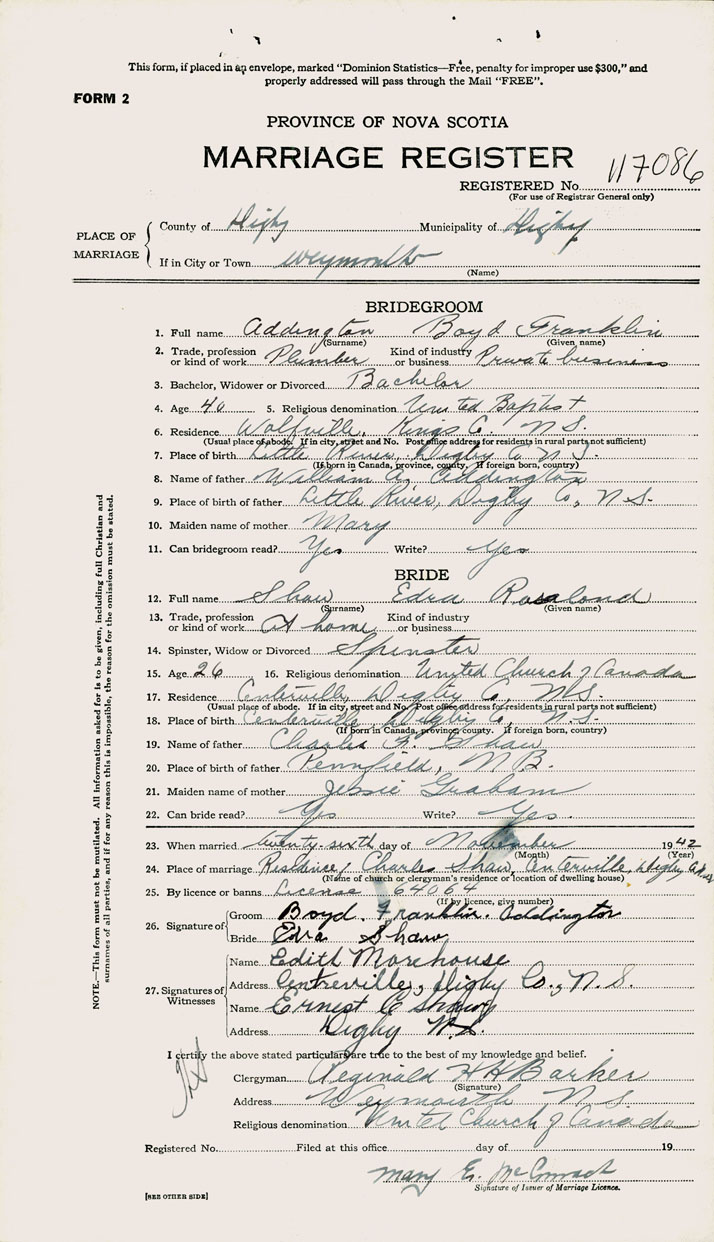 This form, if placed in an envelope, marked "Dominion Statistics—Free, penalty for improper use $300," and
properly addressed will pass through the Mail "FREE".
FORM 2
PROVINCE OF NOVA SCOTIA
MARRIAGE REGISTER
117086
REGISTERED No.
(For use of Registrar General only)
PLACE OF MARRIAGE
County of Digby Municipality of Digby
If in City or Town Weymouth
(Name)
BRIDEGROOM
1. Full name Addington Boyd Franklin
(Surname) (Given name)
2. Trade, profession or kind of work Plumber Kind of industry or business Private business
3. Bachelor, Widower or Divorced Bachelor
4. Age 40 5. Religious denomination United Baptist
6. Residence Wolfville, Kings Co. N.S.
(Usual place of abode. If in city, street and No. Post office address for residents in rural parts not sufficient)
7. Place of birth Little River, Digby Co N.S.
(If born in Canada, province, county. If foreign born, country)
8. Name of father William A. Addington
9. Place of birth of father Little River, Digby Co, N.S.
10. Maiden name of mother Mary
11. Can bridegroom read? Yes Write? Yes
BRIDE
12. Full name Shaw Edra Rosalond
(Surname) (Given name)
13. Trade, profession or kind of work At home Kind of industry or business
14. Spinster, Widow or Divorced Spinster
15. Age 26 16. Religious denomination United Church of Canada
17. Residence Centerville, Digby Co, N.S.
(Usual place of abode. If in city, street and No. Post office address for residents in rural parts not sufficient)
18. Place of birth Centerville, Digby Co, N.S.
(If born in Canada, province, county. If foreign born, country)
19. Name of father Charles F. Shaw
20. Place of birth of father Pennfield, N.B.
21. Maiden name of mother Jessie Graham
22. Can bride read? Yes Write? Yes.
23. When married twenty-sixth day of November 1942
(Month) (Year)
24. Place of marriage Residence, Charles Shaw, Centerville, Digby
(Name of church or clergyman's residence or location of dwelling house)
25. By licence or banns License 64064
(If by licence, give number)
26. Signature of
Groom Boyd. Franklin. Addington
Bride Edra Shaw
27. Signatures of Witnesses
Name Edith Morehouse
Address Centreville, Digby Co., N.S.
Name Ernest C Shaw
Address Digby N.S.
I certify the above stated particulars are true to the best of my knowledge and belief.
Clergyman Reginald H H Barker
(Signature)
Address Weymouth N.S.
Religious denomination United Church of Canada
Registered No. Filed at this office day of 19
Mary E.
Signature of Issuer of Marriage Licence.
[SEE OTHER SIDE]
NOTE.—This form must not be mutilated. All information asked for is to be given, including full Christian and
surnames of all parties, and if for any reason this is impossible, the reason for the omission must be stated.